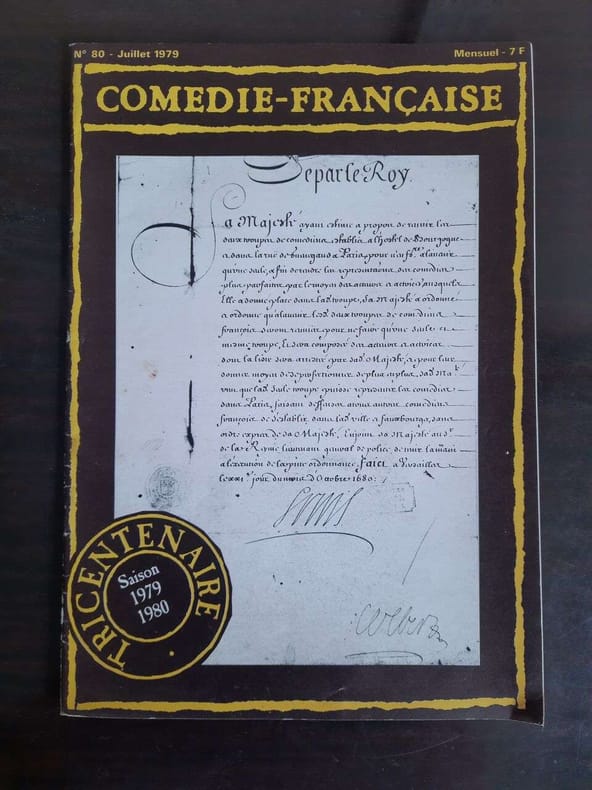 N° 80 - Juillet 1979
Mensuel - 7 F
COMEDIE-FRANÇAISE
Deparle Roy.
Sa Majesté ayant estimé a propos de reunir les
deux troupes de comediens establis a l'hostel de Bourgogne
et dans la rue de Guenegaud a Paris, pour n'en fre. alavenir
qu'une seule, afin de rendre les representations des comedies
plus parfaites par le moyen des acteurs et actrices ausquels
Elle a donné place dans lad. troupe, Sa Majesté a ordonné
et ordonne qu'alavenir lesd. deux troupes de comediens
françois seront reunies pour ne faire qu'une seule et
mesme troupe, et sera composée des acteurs et actrices
dont la liste sera arrestée par sad. Majesté, et pour leur
donner moyen de se perfectionner de plus en plus, sad. Maté.
veut que lad. seule troupe puisse representer les comedies
dans Paris, faisant deffenses a tous autres comediens
françois de s'establir dans lad. ville et fauxbourgs, sans
ordre expres de sa Majesté, Enjoint sa Majesté au Sr.
de la Reynie lieutenant general de police de tenir la main
a l'execution de la pnte ordonnance, faict a Versailles
le xxi. jour du mois d'Octobre 1680.
Louis
Colbert
TRICENTENAIRE
Saison
1979
1980